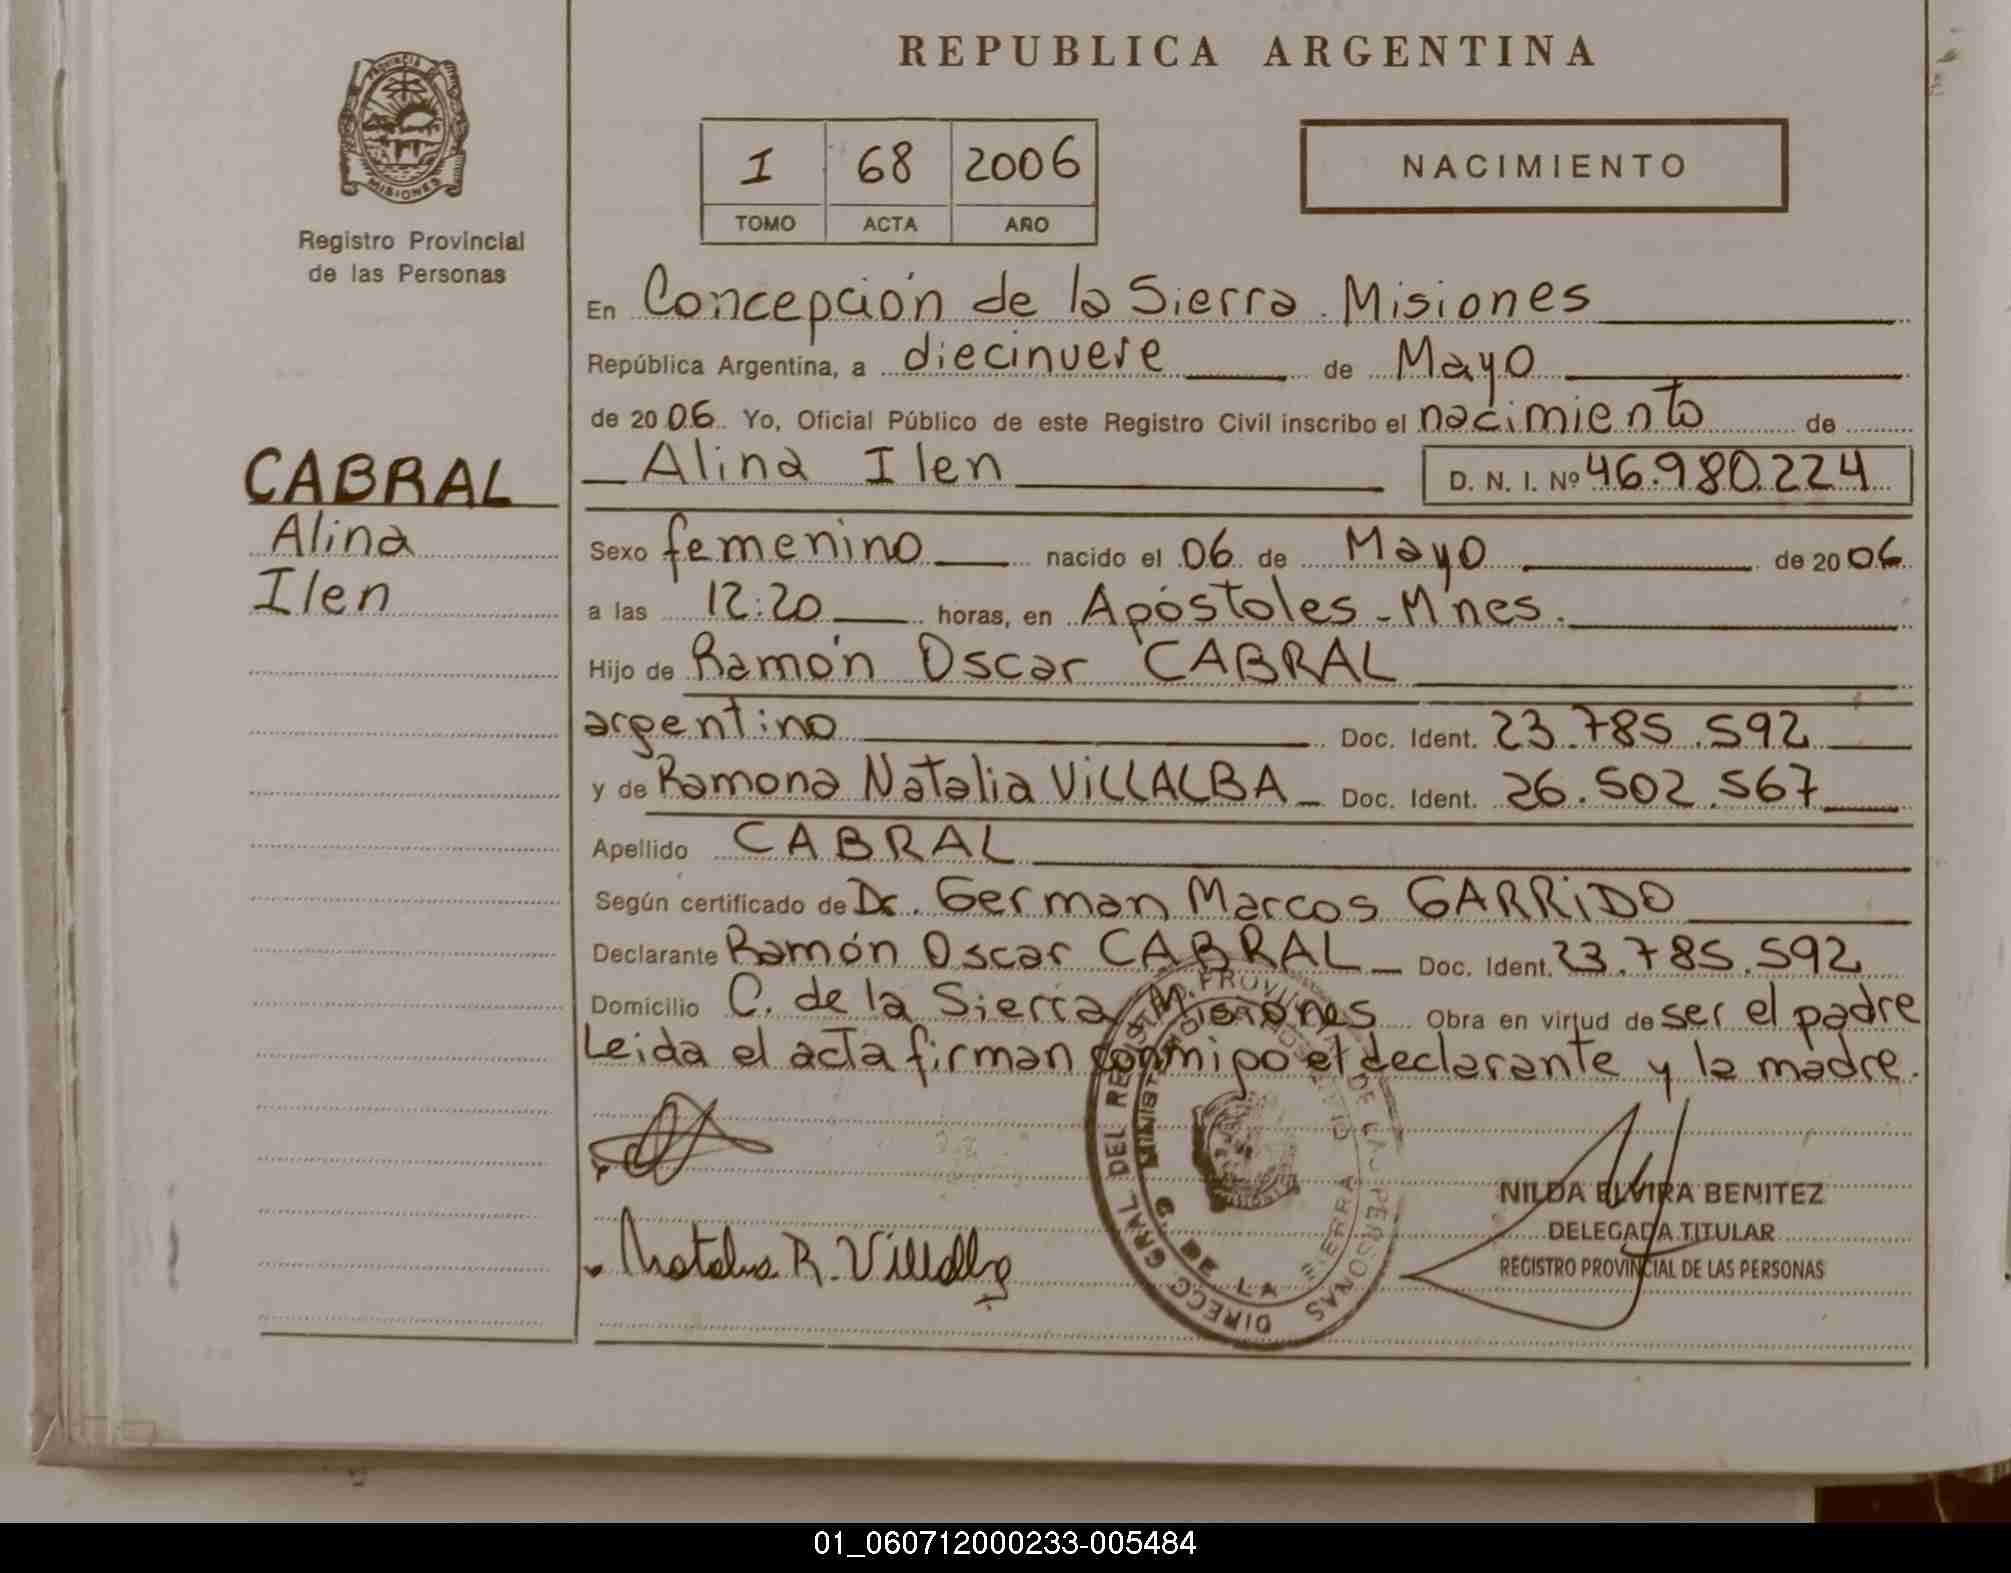 REPUBLICA ARGENTINA
PROVINCIA DE
MISIONES
Registro Provincial
de las Personas
I 68 2006
TOMO ACTA AÑO
NACIMIENTO
En Concepción de la Sierra. Misiones
República Argentina, a diecinueve de Mayo
de 2006. Yo, Oficial Público de este Registro Civil inscribo el nacimiento de
CABRAL
Alina
Ilen
Alina Ilen D. N. I. Nº 46.980.224
Sexo femenino nacido el 06 de Mayo de 2006
a las 12:20 horas, en Apóstoles - M'nes.
Hijo de Ramón Oscar CABRAL
argentino Doc. Ident. 23.785.592
y de Ramona Natalia ViLLALBA Doc. Ident. 26.502.567
Apellido CABRAL
Según certificado de Dr. German Marcos GARRiDO
Declarante Ramón Oscar CABRAL Doc. Ident. 23.785.592
Domicilio C. de la Sierra Misiones Obra en virtud de ser el padre
Leida el acta firman conmigo el declarante y la madre.
Natalia R. Villalba
DIRECC GRAL DEL REGISTRO PROVINCIAL DE LAS PERSONAS
DE LA SIERRA
NILDA ELVIRA BENITEZ
DELEGADA TITULAR
REGISTRO PROVINCIAL DE LAS PERSONAS
01_060712000233-005484